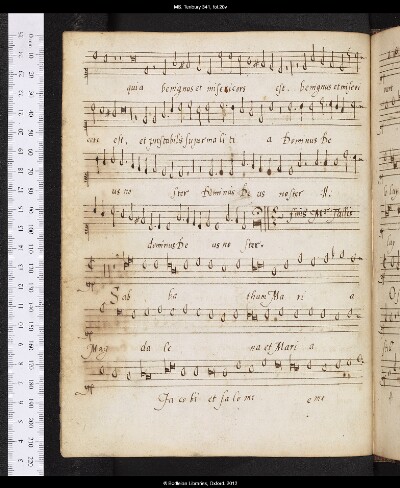 MS. Tenbury 341, fol.20v
quia benignus et misericors est. benignus et miseri
cors est, et prestabilis super mali ti a Dominus De
us no ster Dominus De us noster
finis Mr Tallis
dominus De us no ster.
Sab ba thum Ma ri a
Mag da le na et Mari a
Ja co bi et sa lo me
© Bodleian Libraries, Oxford, 2012